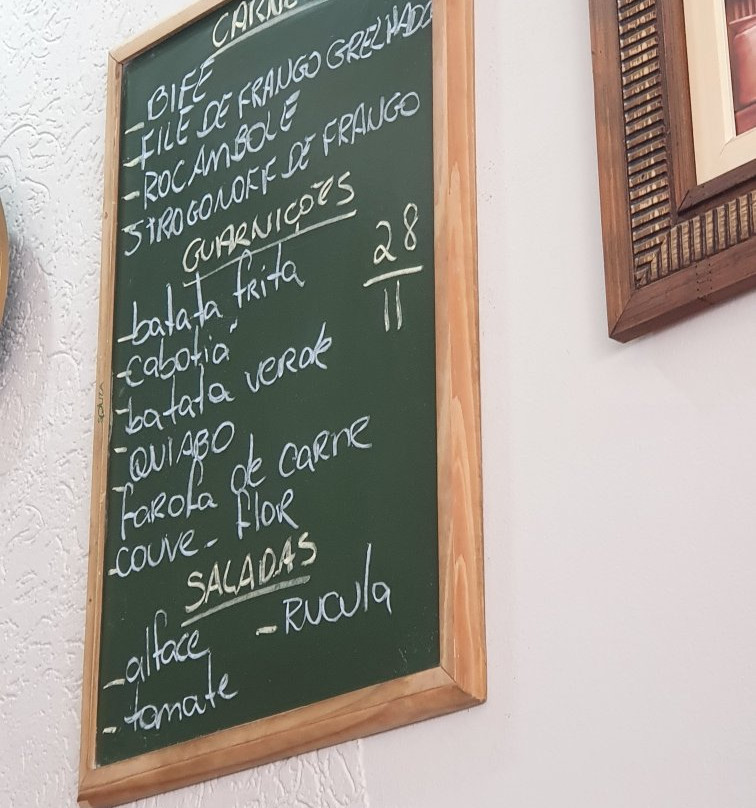 CARNE
- BIFE
- FILE DE FRANGO GRELHADO
- ROCAMBOLE
STROGONOFF DE FRANGO
GUARNIÇÕES
28
11
- batata frita
- cabotia
- batata verde
- QUIABO
farofa de carne
- couve - flor
SALADAS
- alface - Rucula
- tomate